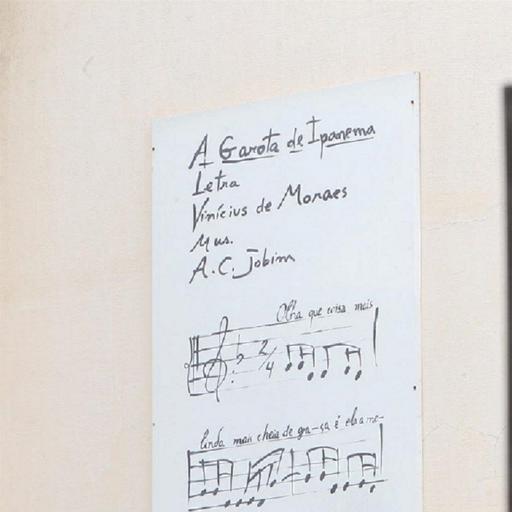 A Garota de Ipanema
Letra
Vinícius de Moraes
Mus.
A.C. Jobim
Olha que coisa mais
2/4
linda mais cheia de gra-ça é ela me-